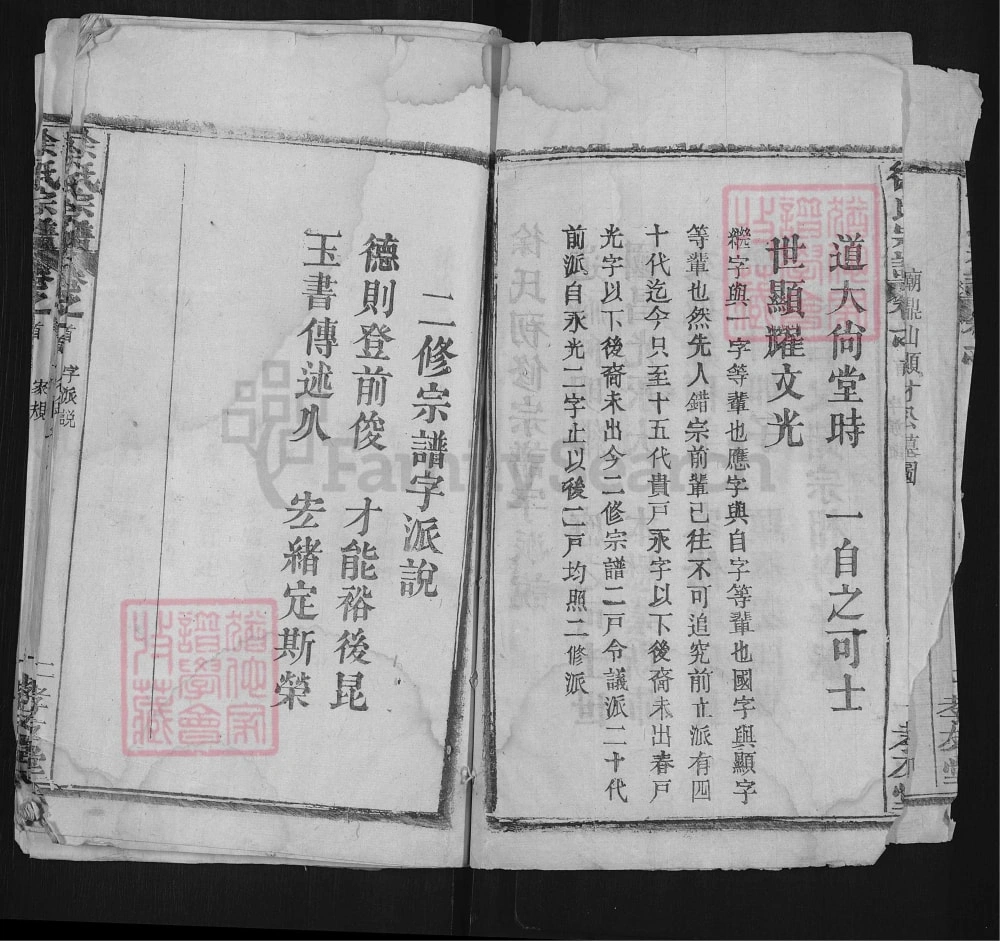 廟鼎山顯才公墓圖
道大尙堂時　一自之可士
世顯耀文光
緃字與一字等輩也應字與自字等輩也國字與顯字
等輩也然先人錯宗前輩已往不可追究前立派有四
十代迄今只至十五代貴戸永字以下後裔未出春戸
光字以下後裔未出今二修宗譜二戸令議派二十代
前派自永光二字止以後二戸均照二修派
二修宗譜字派說
德則登前俊　才能裕後昆
玉書傳述久　宏緒定斯榮
徐氏宗譜
卷之首
字派說
徐氏宗譜
卷之首
家規
FamilySearch